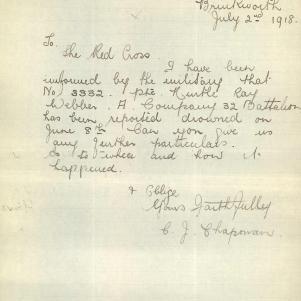 Brinkworth
July 2nd 1918.
To.
The Red Cross.
I have been
informed by the military that
No 3332. Pte. Hurtle Ray
Webber. A. Company 32 Battalion
has been reported drowned on
June 8th. Can you give us
any further particulars.
as to where and how it
happened.
& Oblige
Yours Faithfully
C. J. Chapman.